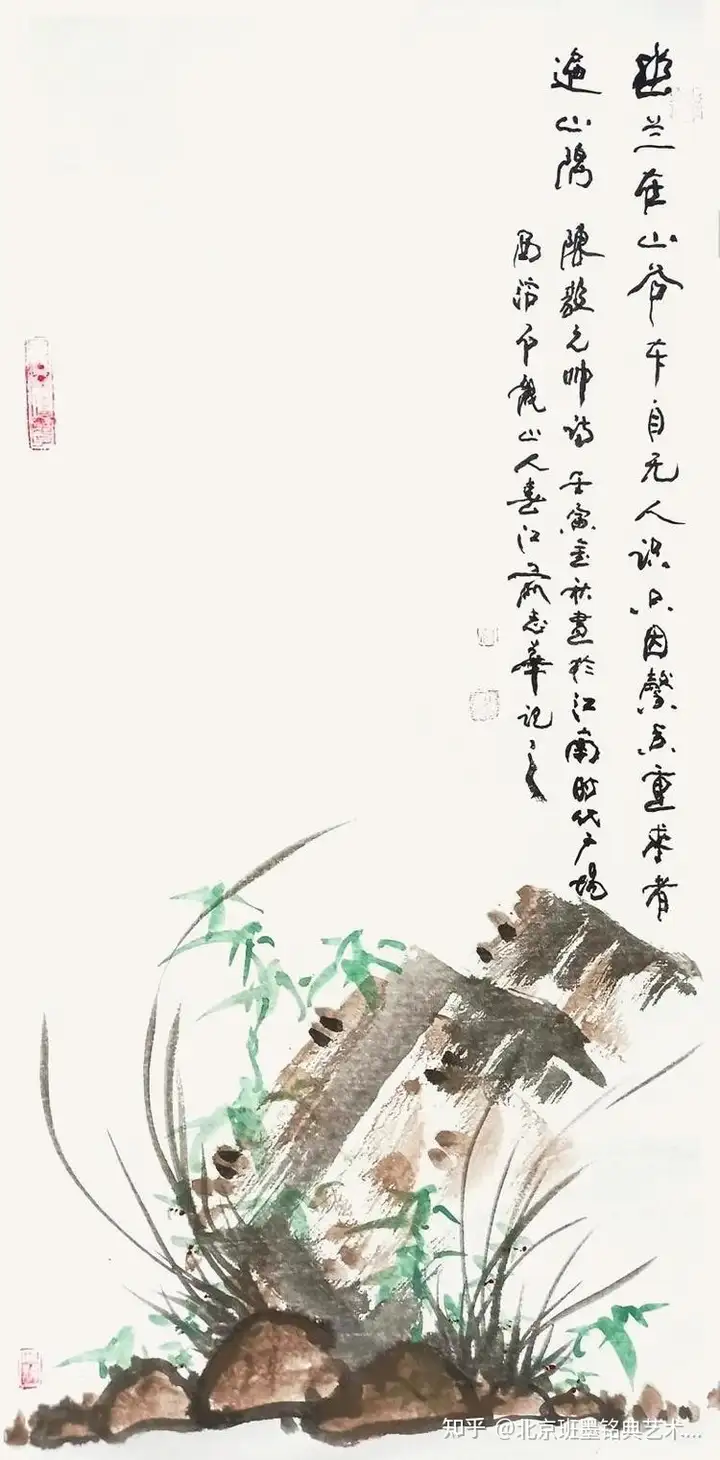 幽兰在山谷本自无人识只因馨香重求者
遍山隅 陳毅元帅诗 壬寅金秋畫於江南时代广场
山人春江志華记之
知乎 @北京班墨铭典艺术....